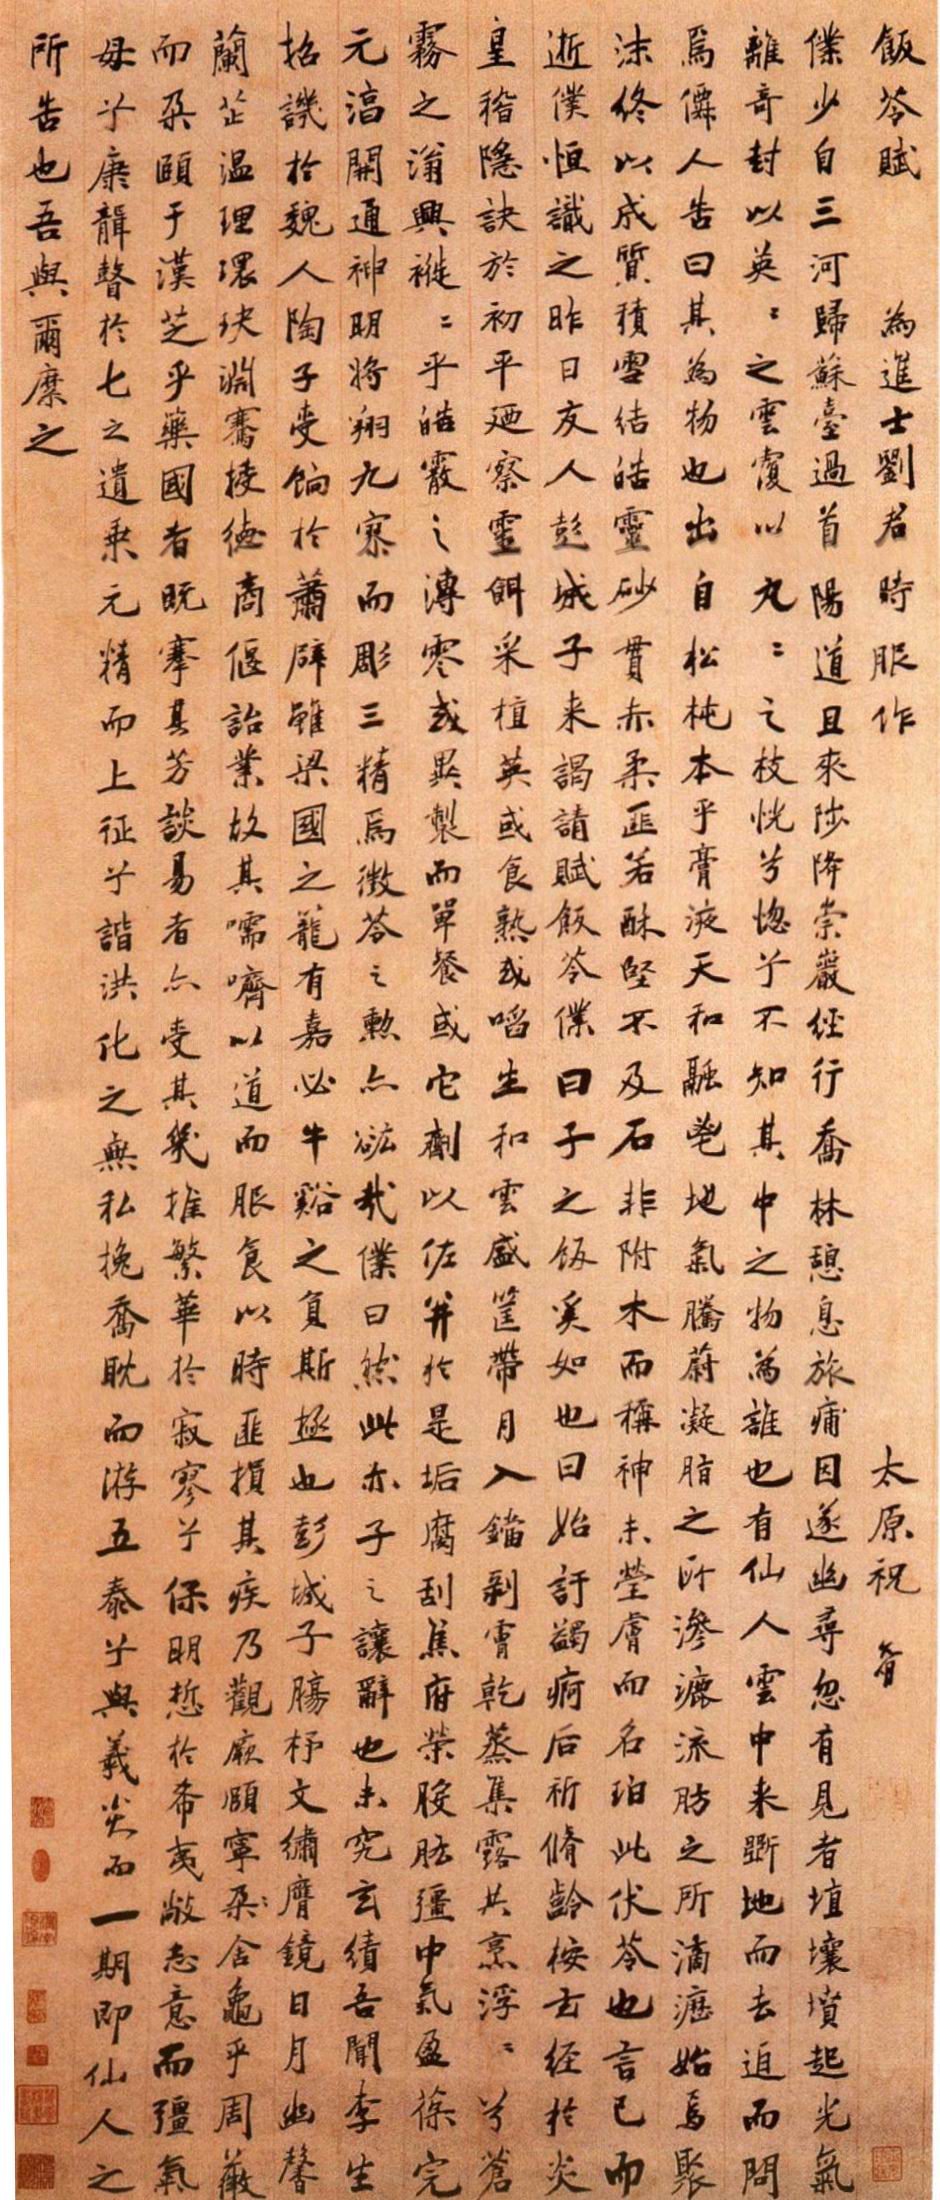 飯苓賦 為進士劉君時服作 太原祝
僕少自三河歸蘇臺過首陽道且來陟降崇巖經行喬林憩息旅痡因遂幽尋忽有見者埴壤墳起光氣
離奇封以英〻之雲覆以丸〻之枝恍兮惚兮不知其中之物為誰也有仙人雲中来斲地而去追而問
焉僊人告曰其為物也出自松杶本乎膏液天和融鬯地氣騰蔚凝脂之所滲漉流肪之所滴瀝始焉聚
沫終以成質積雪結皓靈砂貫赤柔匪若酥堅不及石非附木而稱神未瑩膚而名珀此伏苓也言已而
逝僕恒識之昨日友人彭城子来謁請賦飯苓僕曰子之飯奚如也曰始訏蠲痾后祈脩齡桉古经於炎
皇稽隱訣於初平廼察靈餌采植英或食熟或啗生和雲盛筐帶月入鐺剝膚乾蒸集露共烹浮〻兮蒼
霧之滃興褷〻乎皓霰之漙零或異製而單餐或它劑以佐并於是垢腐刮焦府荣胺胠彊中氣盈葆完
元滀開通神明將翔九寮而彫三精焉微苓之勲亦竑哉僕曰然此亦子之讓辭也未究玄績吾聞李生
招譏於魏人陶子受餉於蕭辟雖梁國之龍有嘉必牛谿之負斯極也彭城子腸杼文繡膺鏡日月幽馨
蘭芷温理環玦淵騫接德商偃詒業故其嚅嚌以道而服食以時匪損其疾乃觀厥頤寧朶〻舍龜乎周薇
而朶頤于漢芝乎藥國者既搴其芳談昜者亦受其幾摧繁華於寂寥兮保明悊於希夷敞志意而彊氣
毋兮康韻聲於七之遺乗元精而上征兮諧洪化之無私挽喬耽而游五泰兮與羲炎而一期即仙人之
所告也吾與爾麋之